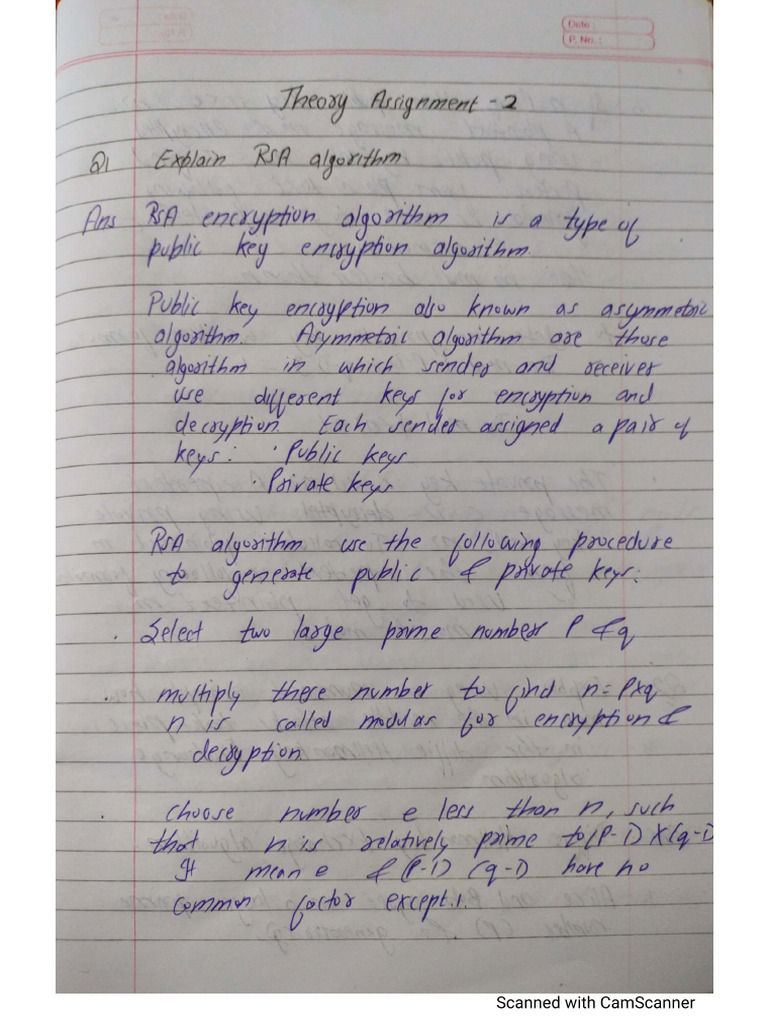 Date :
P. No. :
Theory Assignment - 2
Q1 Explain RSA algorithm
Ans RSA encryption algorithm is a type of
public key encryption algorithm.
Public key encryption also known as asymmetric
algorithm. Asymmetric algorithm are those
algorithm in which sender and receiver
use different keys for encryption and
decryption. Each sender assigned a pair of
keys: · Public keys
· Private keys
RSA algorithm use the following procedure
to generate public & private keys:
· Select two large prime numbers P & q
· multiply these number to find n = P×q
n is called modulas for encryption &
decryption.
· choose number e less than n, such
that n is relatively prime to (P-1) X (q-1)
It mean e & (P-1) (q-1) have no
common factor except 1.
Scanned with CamScanner